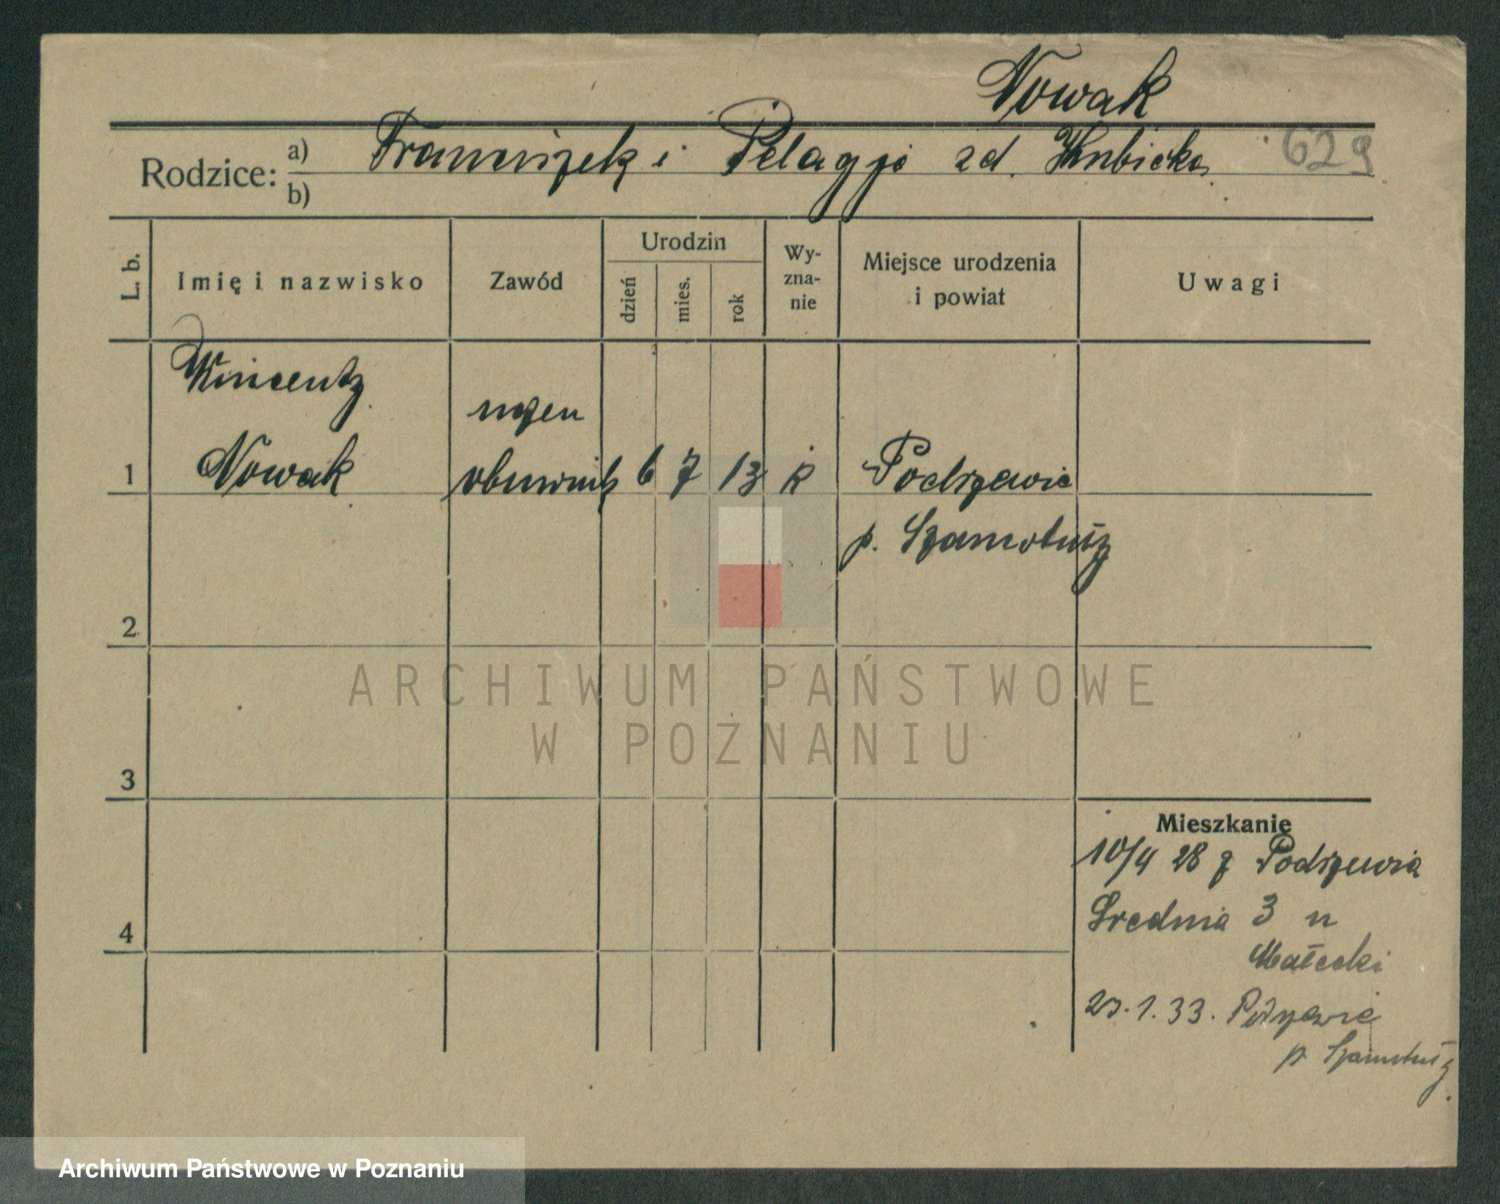 Nowak
Rodzice: a) Franciszek i Pelagja zd. Kubicka 629
b)
L. b.
Imię i nazwisko
Zawód
Urodzin
dzień
mies.
rok
Wy-
zna-
nie
Miejsce urodzenia
i powiat
Uwagi
Wincenty
uczeń
1 Nowak obuwnik 6 7 13 k Podrzewie
p. Szamotuły
2
3
4
Mieszkanie
10/4 28 z Podrzewia
Srednia 3 u
Małecki
23.1.33. Podrzewie
p Szamotuły
ARCHIWUM PAŃSTWOWE
W POZNANIU
Archiwum Państwowe w Poznaniu